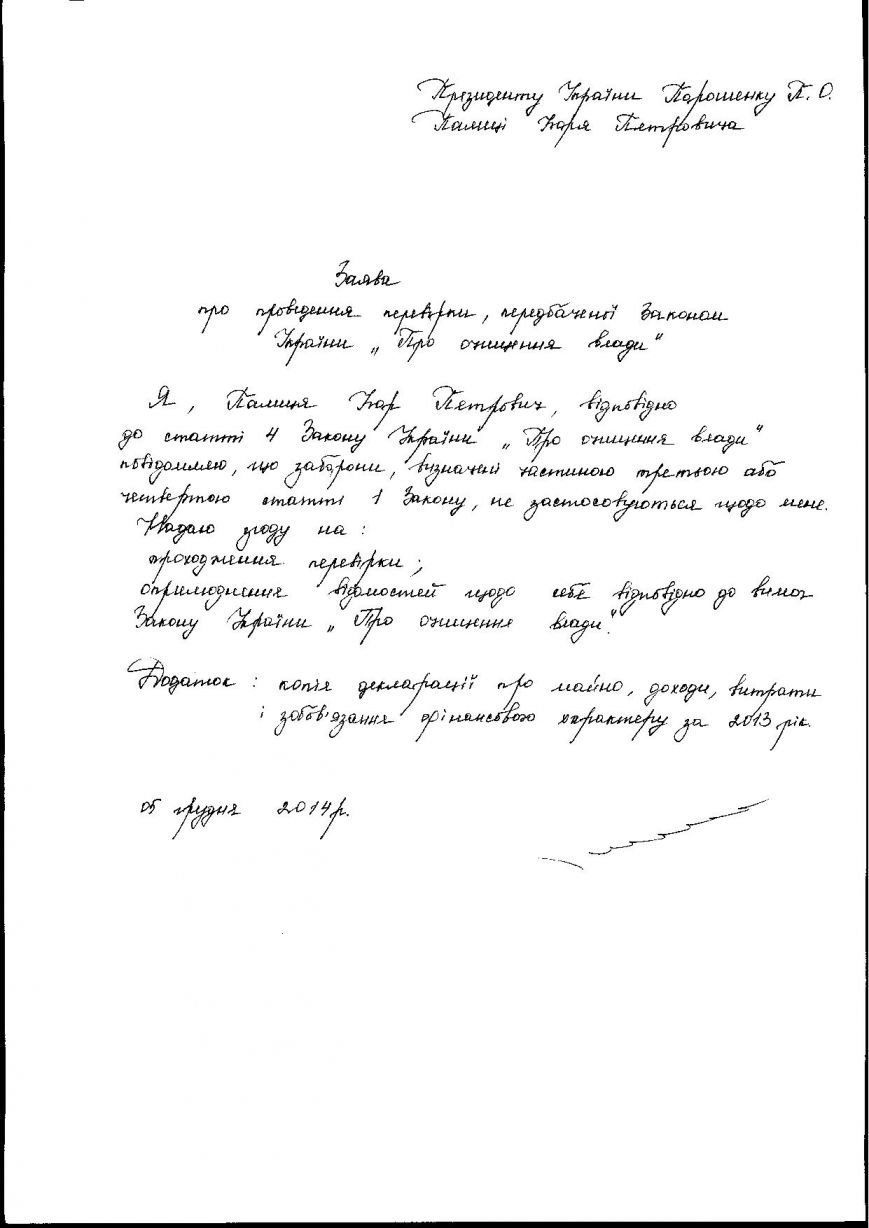 Президенту України Парошенку П. О.
Палиці Ігоря Петровича
Заява
про проведення перевірки, передбаченої Законом
України „Про очищення влади"
Я, Палиця Ігор Петрович, відповідно
до статті 4 Закону України „Про очищення влади"
повідомляю, що заборони, визначені частиною третьою або
четвертою статті 1 Закону, не застосовуються щодо мене.
Надаю згоду на:
проходження перевірки;
оприлюднення відомостей щодо себе відповідно до вимог
Закону України „Про очищення влади".
Додаток: копія декларації про майно, доходи, витрати
і зобов'язання фінансового характеру за 2013 рік.
05 грудня 2014 р.